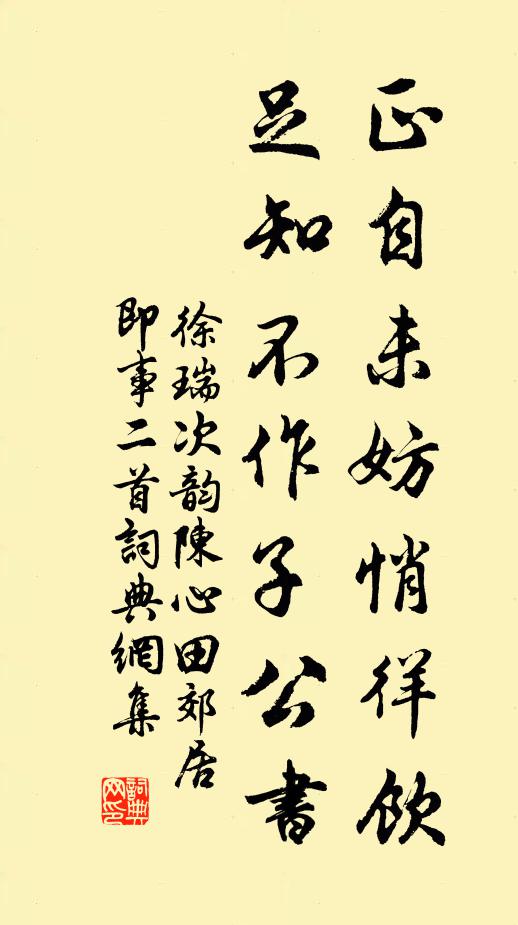 正自未妨悄徉飲
足知不作子公書
徐瑞次韵陳心田郊居
即事二首詞典網集
詞典網印